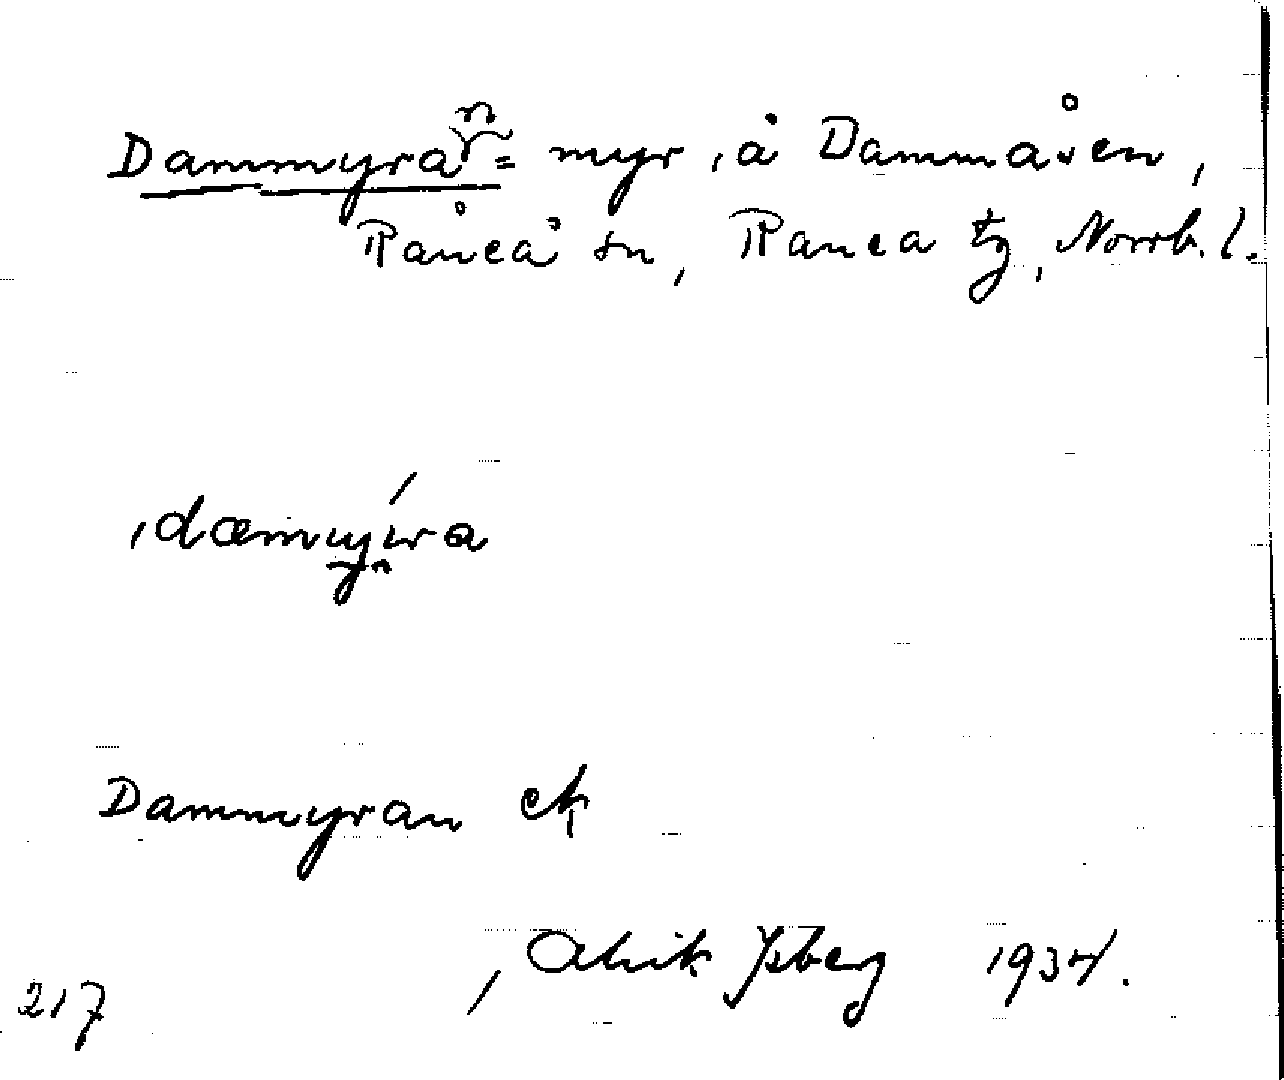 Dammyran = myr, å Dammåsen,
Råneå sn, Råneå tg, Norrb. l.
Dammyran ek
Alrik Ysberg 1934.
217